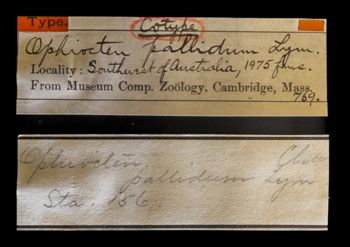 Type.
Cotype
Ophiocten pallidum Lym.
Locality: Southwest of Australia, 1975 fms.
From Museum Comp. Zoölogy, Cambridge, Mass.
769.
Ophiocten
pallidum Lym
Sta. 156